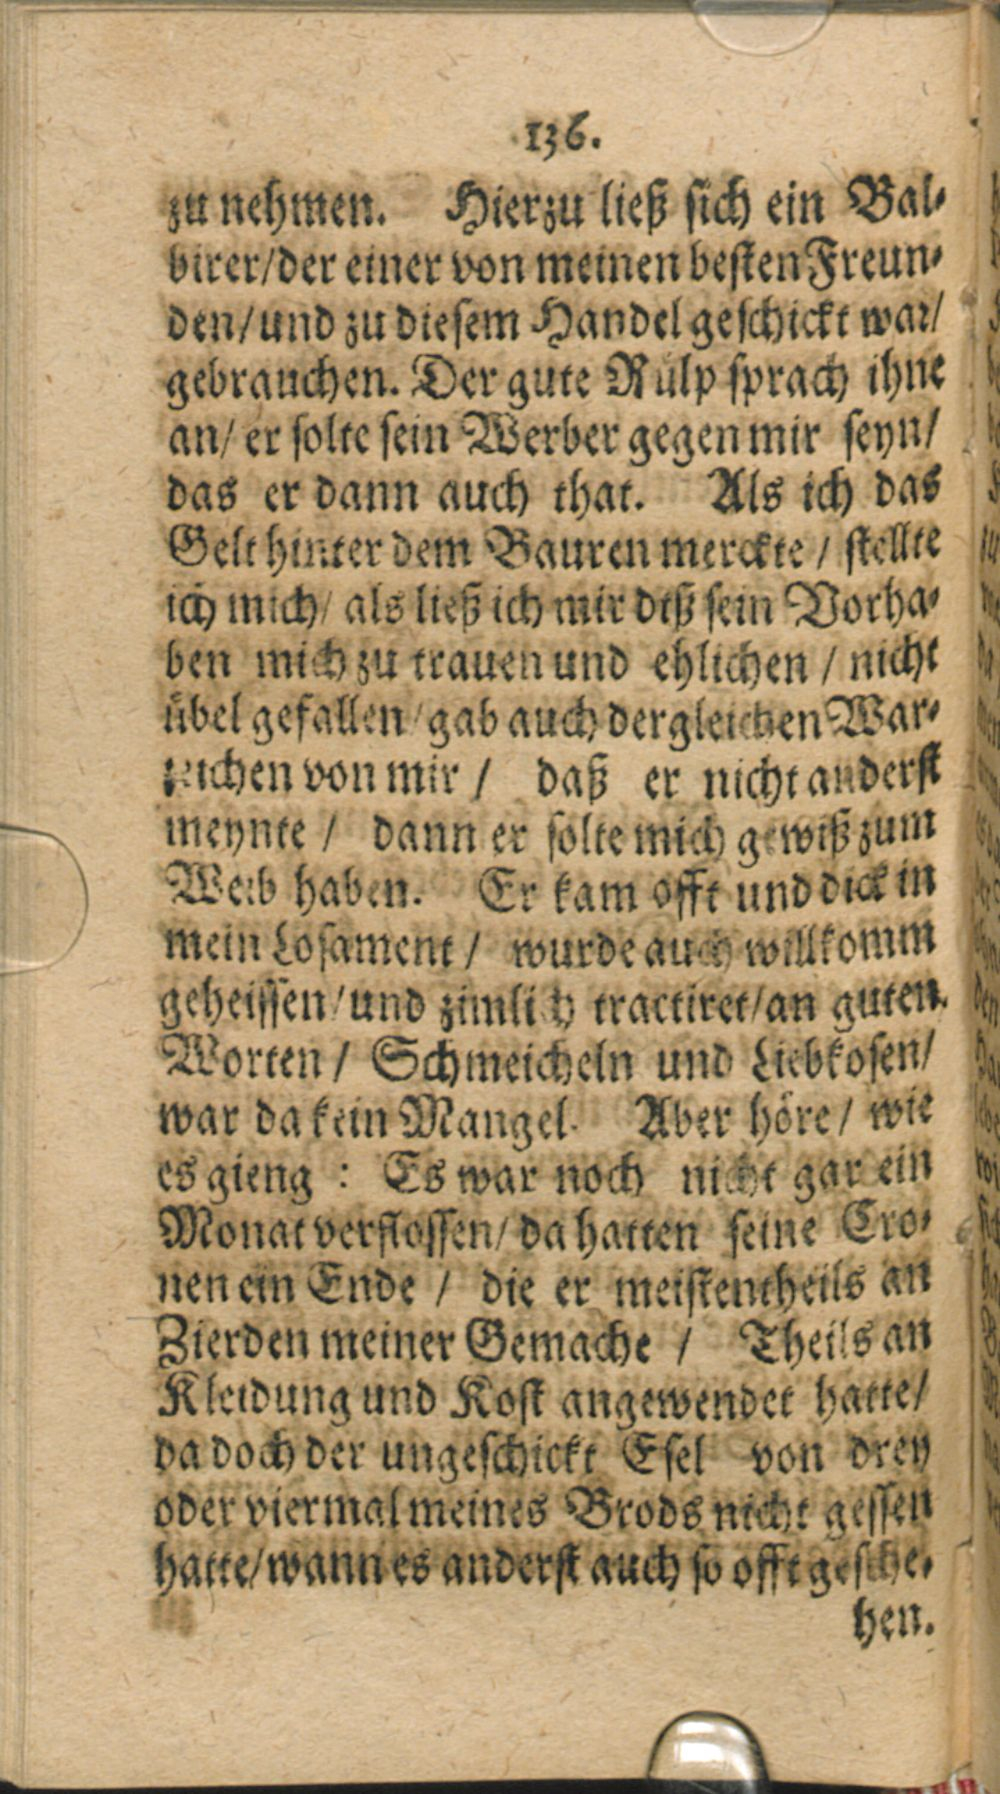 136.
zu nehmen. Hierzu ließ sich ein Bal-
birer/der einer von meinen besten Freun-
den/und zu diesem Handel geschickt war/
gebrauchen. Der gute Rülp sprach ihne
an/ er solte sein Werber gegen mir seyn/
das er dann auch that. Als ich das
Gelt hinter dem Bauren merckte / stellte
ich mich/ als ließ ich mir diß sein Vorha-
ben mich zu trauen und ehlichen / nicht
übel gefallen/gab auch dergleichen War-
zeichen von mir / daß er nicht anderst
meynte / dann er solte mich gewiß zum
Weib haben. Er kam offt und dick in
mein Losament / wurde auch willkomm
geheissen/und zimlich tractiret/an guten
Worten / Schmeicheln und Liebkosen/
war da kein Mangel. Aber höre / wie
es gieng : Es war noch nicht gar ein
Monat verflossen/ da hatten seine Cro-
nen ein Ende / die er meistentheils an
Zierden meiner Gemache / Theils an
Kleidung und Kost angewendet hatte/
da doch der ungeschickt Esel von drey
oder viermal meines Brods nicht gessen
hatte/wann es anderst auch so offt gesche-
hen.